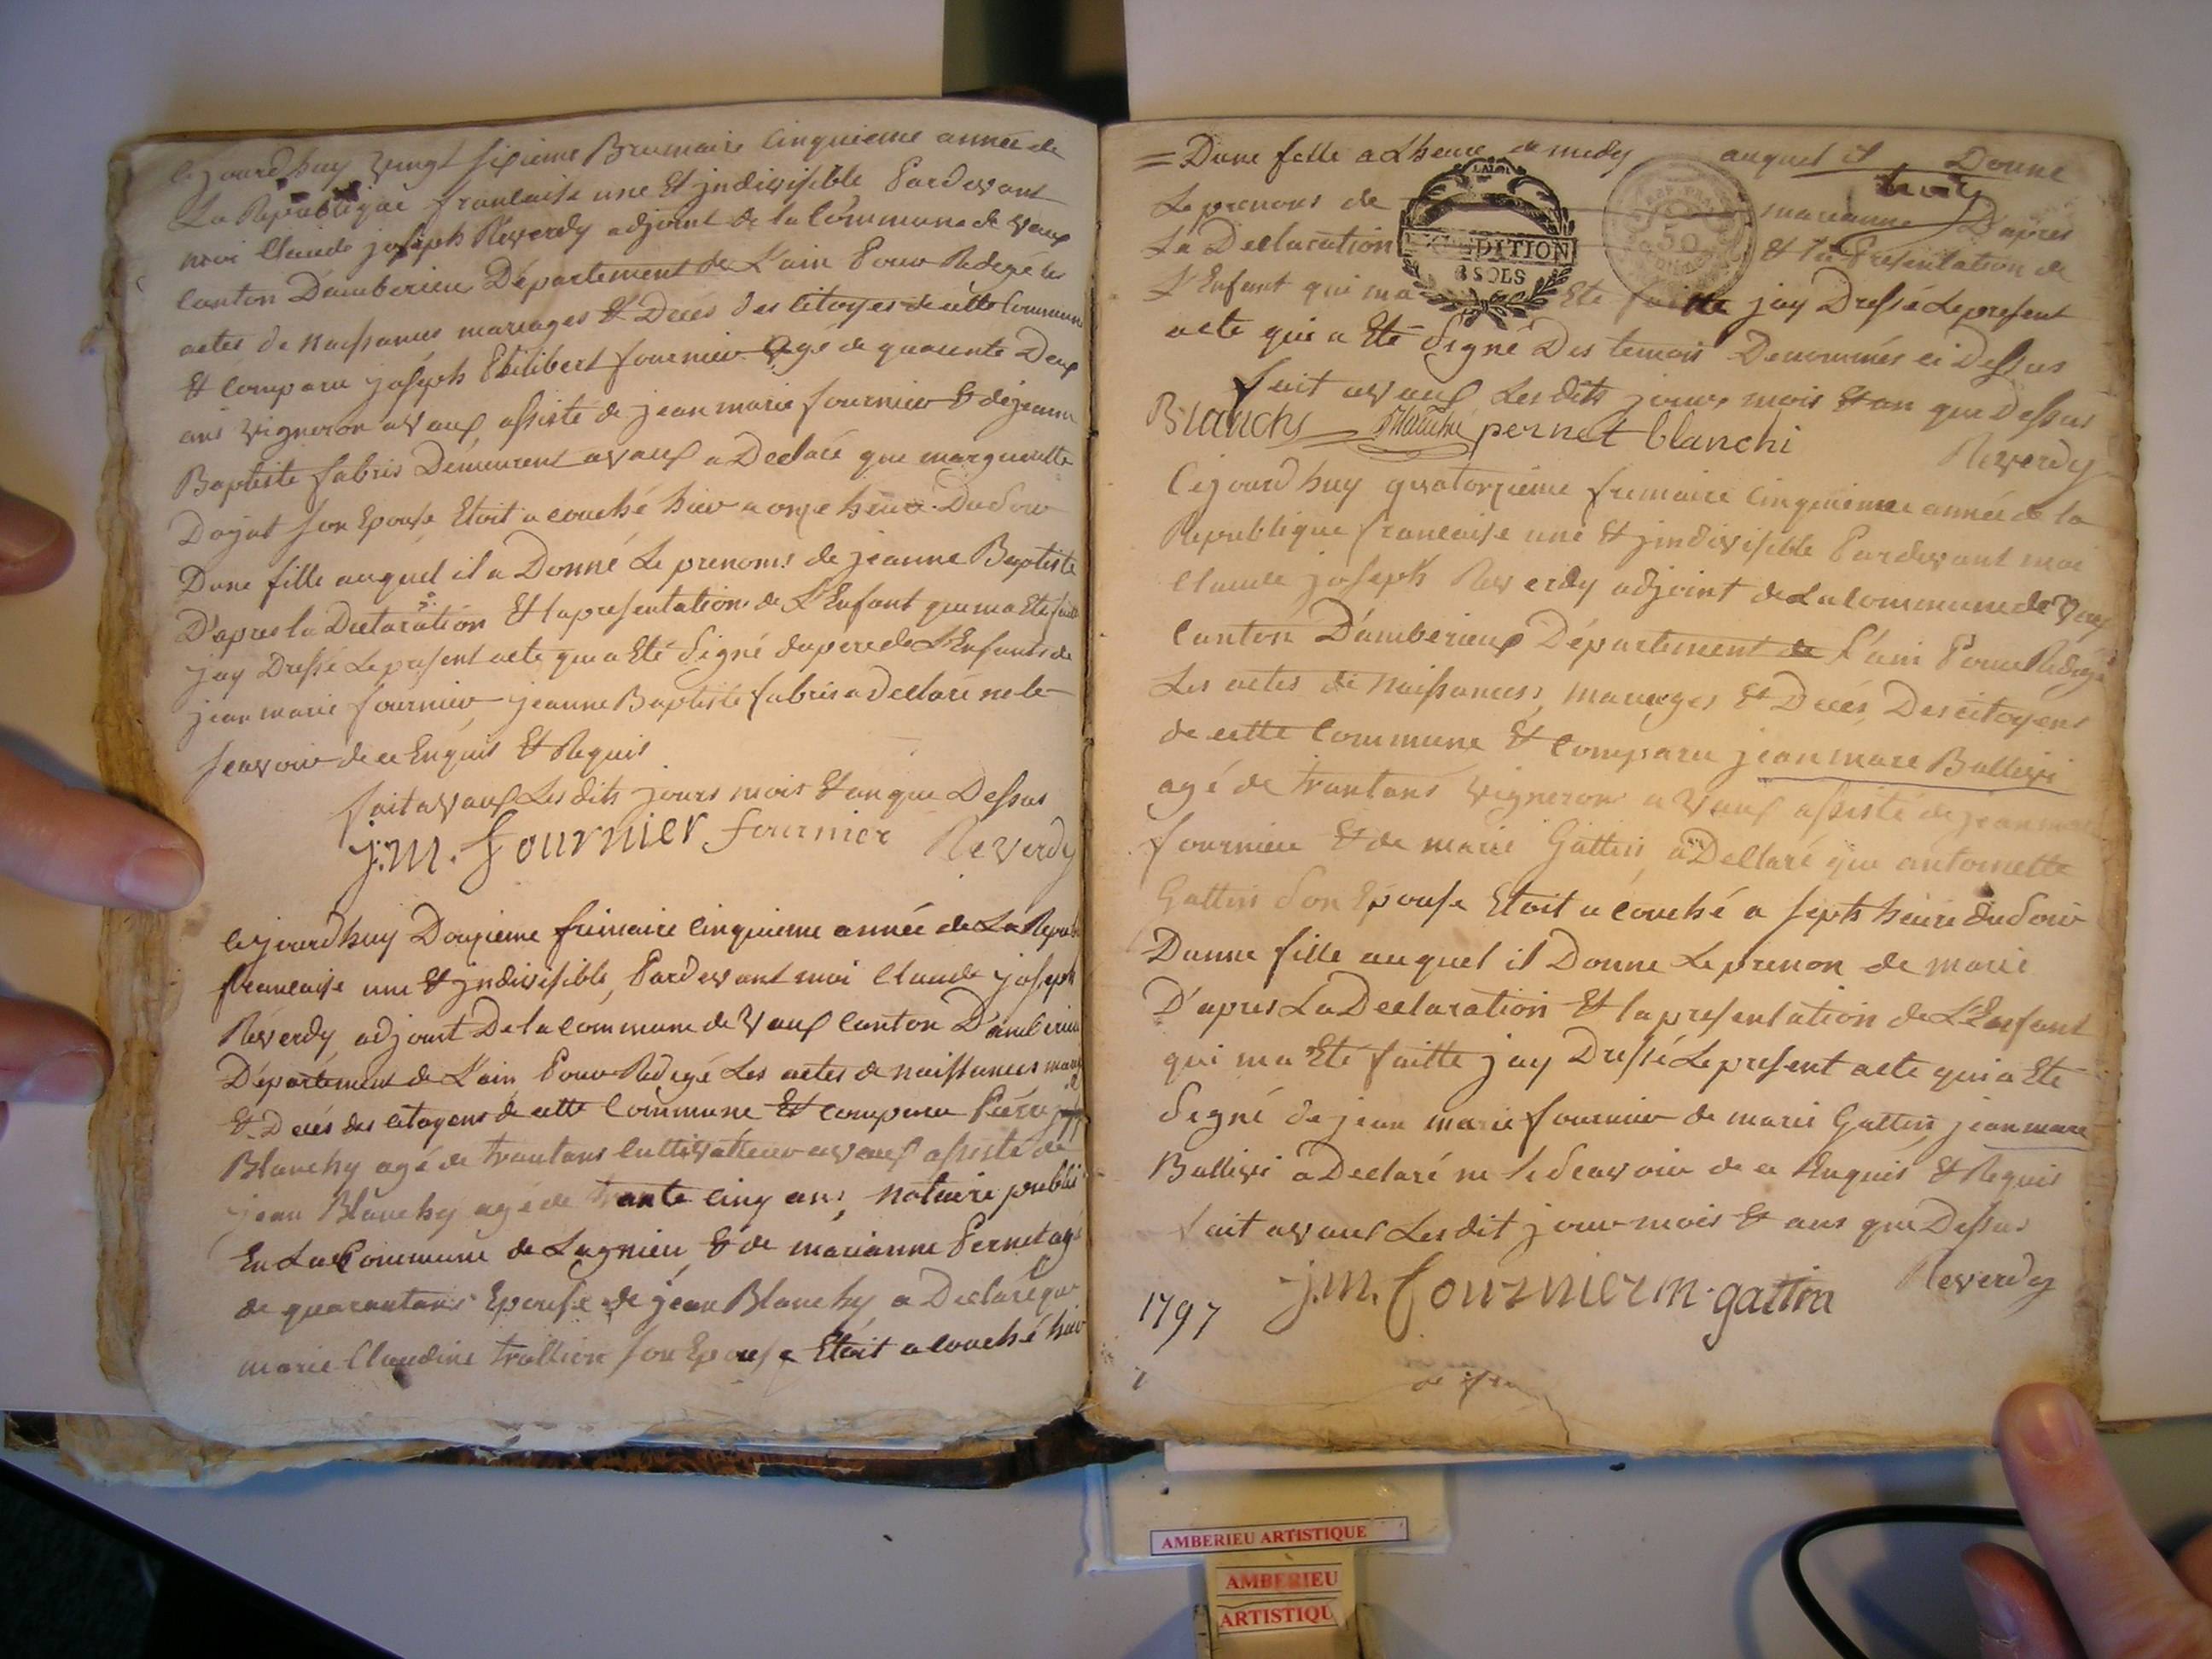 Cejourdhuy vingt sixieme Brumaire Cinquieme année de
La Republique francaise une Et jndivisible Pardevant
moi Claude joseph Reverdy adjoint de la Commune de Vaux
Canton D'amberieux Département de L'ain Pour Redigé les
actes de Naissances mariages Et Decés des Citoyes de cette Commune
Et Comparu joseph Philibert fournier Agé de quarente Deux
ans vigneron a Vaux, assisté de jean marie fournier Et de jeanne
Baptiste fabris Demeurent a Vaux a Declaré que margueritte
Dojat son Epouse Etoit a couché hier a onze heure Du Soir
Dune fille auquel il a Donné Le prenoms de jeanne Baptiste
D'apres la Declaration Et la presentation de L'Enfant qui ma Eté faitte
jay Dressé Le present acte qui a Eté Signé du pere de L'Enfant de
jean marie fournier jeanne Baptiste fabris a Declaré ne le
scavoir de ce Enquis Et Requis
fait a Vaux Les dits jours mois Et an que Dessus
j.m. fournier fournier Reverdy
Cejourdhuy Douzieme frimaire Cinquieme année de La Repub
francaise une Et jndivisible, Pardevant moi Claude joseph
Reverdy adjoint De la Commune de Vaux Canton D'amberieux
Département de L'ain Pour Redigé Les actes de naissances mariag
Et Decés des Citoyens de cette Commune Et Comparu
Blanchy agé de trantans Cultivatteur a Vaux assisté de
jean Blanchy agé de trante Cinq ans, notaire public
En La Commune de Lagnieu, Et de marianne Pernet agé
de quarantans Epouse de jean Blanchy, a Declaré que
marie Claudine trollion son Epouse Etoit a couché hier
= Dune fille a L'heure de midy auquel il Donne
Le prenoms de marianne D'apres
La Declaration Et La Presentation de
L'Enfant qui ma Eté faitte jay Dressé Le present
acte qui a Eté Signé Des temois Denommés ci Dessus
LA LOI
EXPEDITION
8 SOLS
50
fait a Vaux Les dits jours mois Et an que Dessus
Blanchy Blanchi pernet blanchi
Reverdy
Cejourdhuy quatorzieme frimaire Cinquieme année de la
Republique francaise une Et jndivisible Pardevant moi
Claude joseph Reverdy adjoint de La Commune de Vaux
Canton D'amberieux Département de L'ain Pour Redigé
Les actes de Naissances, mariages Et Decés Des citoyens
de cette Commune Et Comparu jean marc Ballivi
agé de trantans Vigneron a Vaux assisté de jean marie
fournier Et de marie Gattin, a Declaré que antoinette
Gattin Son Epouse Etoit a couché a septs heure du Soir
Dunne fille auquel il Donne Le prenon de marie
D'apres La Declaration Et la presentation de L'Enfant
qui ma Eté faitte jay Dressé Le present acte qui a Eté
Signé de jean marie fournier de marie Gattin, jean marc
Ballivi a Declaré ne le Scavoir de ce Enquis Et Requis
fait a Vaux Les dit jour mois Et ans que Dessus
j.m. fournier m. gattin Reverdy
1797
AMBERIEU ARTISTIQUE
AMBERIEU
ARTISTIQU